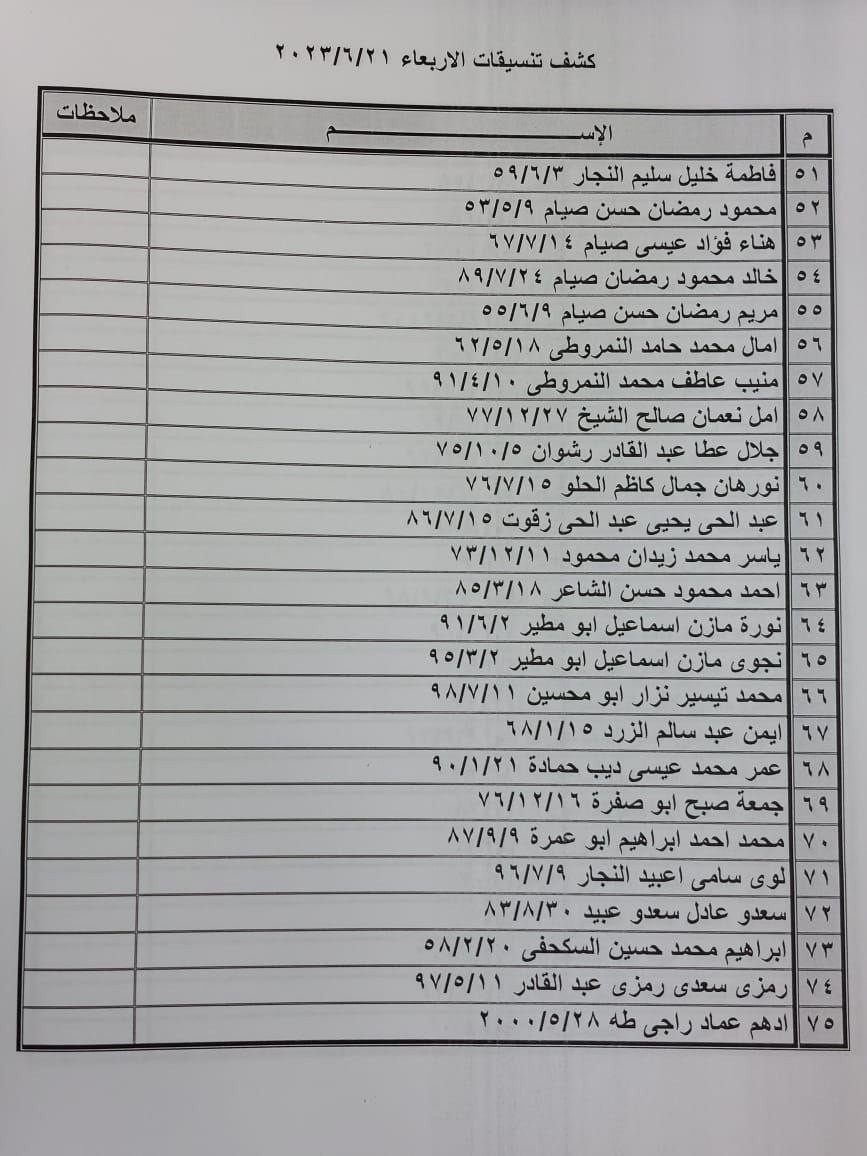 كشف تنسيقات الاربعاء ٢٠٢٣/٦/٢١
م الإســــم ملاحظات
٥١ فاطمة خليل سليم النجار ٥٩/٦/٣
٥٢ محمود رمضان حسن صيام ٥٣/٥/٩
٥٣ هناء فؤاد عيسى صيام ٦٧/٧/١٤
٥٤ خالد محمود رمضان صيام ٨٩/٧/٢٤
٥٥ مريم رمضان حسن صيام ٥٥/٦/٩
٥٦ امال محمد حامد النمروطى ٦٢/٥/١٨
٥٧ منيب عاطف محمد النمروطى ٩١/٤/١٠
٥٨ امل نعمان صالح الشيخ ٧٧/١٢/٢٧
٥٩ جلال عطا عبد القادر رشوان ٧٥/١٠/٥
٦٠ نورهان جمال كاظم الحلو ٧٦/٧/١٥
٦١ عبد الحى يحيى عبد الحى زقوت ٨٦/٧/١٥
٦٢ ياسر محمد زيدان محمود ٧٣/١٢/١١
٦٣ احمد محمود حسن الشاعر ٨٥/٣/١٨
٦٤ نورة مازن اسماعيل ابو مطير ٩١/٦/٢
٦٥ نجوى مازن اسماعيل ابو مطير ٩٥/٣/٢
٦٦ محمد تيسير نزار ابو محسين ٩٨/٧/١١
٦٧ ايمن عبد سالم الزرد ٦٨/١/١٥
٦٨ عمر محمد عيسى ديب حمادة ٩٠/١/٢١
٦٩ جمعة صبح ابو صفرة ٧٦/١٢/١٦
٧٠ محمد احمد ابراهيم ابو عمرة ٨٧/٩/٩
٧١ لوى سامى اعبيد النجار ٩٦/٧/٩
٧٢ سعدو عادل سعدو عبيد ٨٣/٨/٣٠
٧٣ ابراهيم محمد حسين السكحفى ٥٨/٢/٢٠
٧٤ رمزى سعدى رمزى عبد القادر ٩٧/٥/١١
٧٥ ادهم عماد راجى طه ٢٠٠٠/٥/٢٨